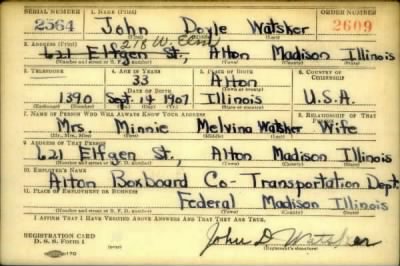 SERIAL NUMBER 1. NAME (Print) ORDER NUMBER
2564 John Doyle Watsker 2609
218 W. Elm
2. ADDRESS (Print)
621 Elfgen St., Alton Madison Illinois
(Number and street or R. F. D. number) (Town) (County) (State)
3. TELEPHONE 4. AGE IN YEARS 5. PLACE OF BIRTH 6. COUNTRY OF CITIZENSHIP
33 Alton
DATE OF BIRTH (Town or county)
1390 Sept. 14 1907 Illinois U.S.A.
(Exchange) (Number) (Mo.) (Day) (Yr.) (State or country)
7. NAME OF PERSON WHO WILL ALWAYS KNOW YOUR ADDRESS 8. RELATIONSHIP OF THAT PERSON
Mrs Minnie Melvina Watsker Wife
(Mr., Mrs., Miss) (First) (Middle) (Last)
9. ADDRESS OF THAT PERSON
621 Elfgen St., Alton Madison Illinois
(Number and street or R. F. D. number) (Town) (County) (State)
10. EMPLOYER'S NAME
Alton Boxboard Co - Transportation Dept.
11. PLACE OF EMPLOYMENT OR BUSINESS
Federal Madison Illinois
(Number and street or R. F. D. number) (Town) (County) (State)
I AFFIRM THAT I HAVE VERIFIED ABOVE ANSWERS AND THAT THEY ARE TRUE.
REGISTRATION CARD
D. S. S. Form 1
John D. Watsker
(Registrant's signature)